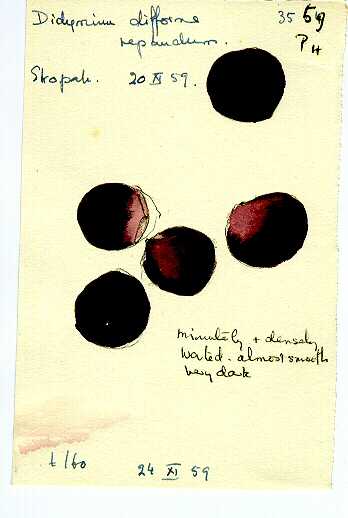 Didymium difforme
repandum.
3559
PH
20 XI 59.
minutely + densely
warted - almost smooth
very dark
t/60
24 XI 59